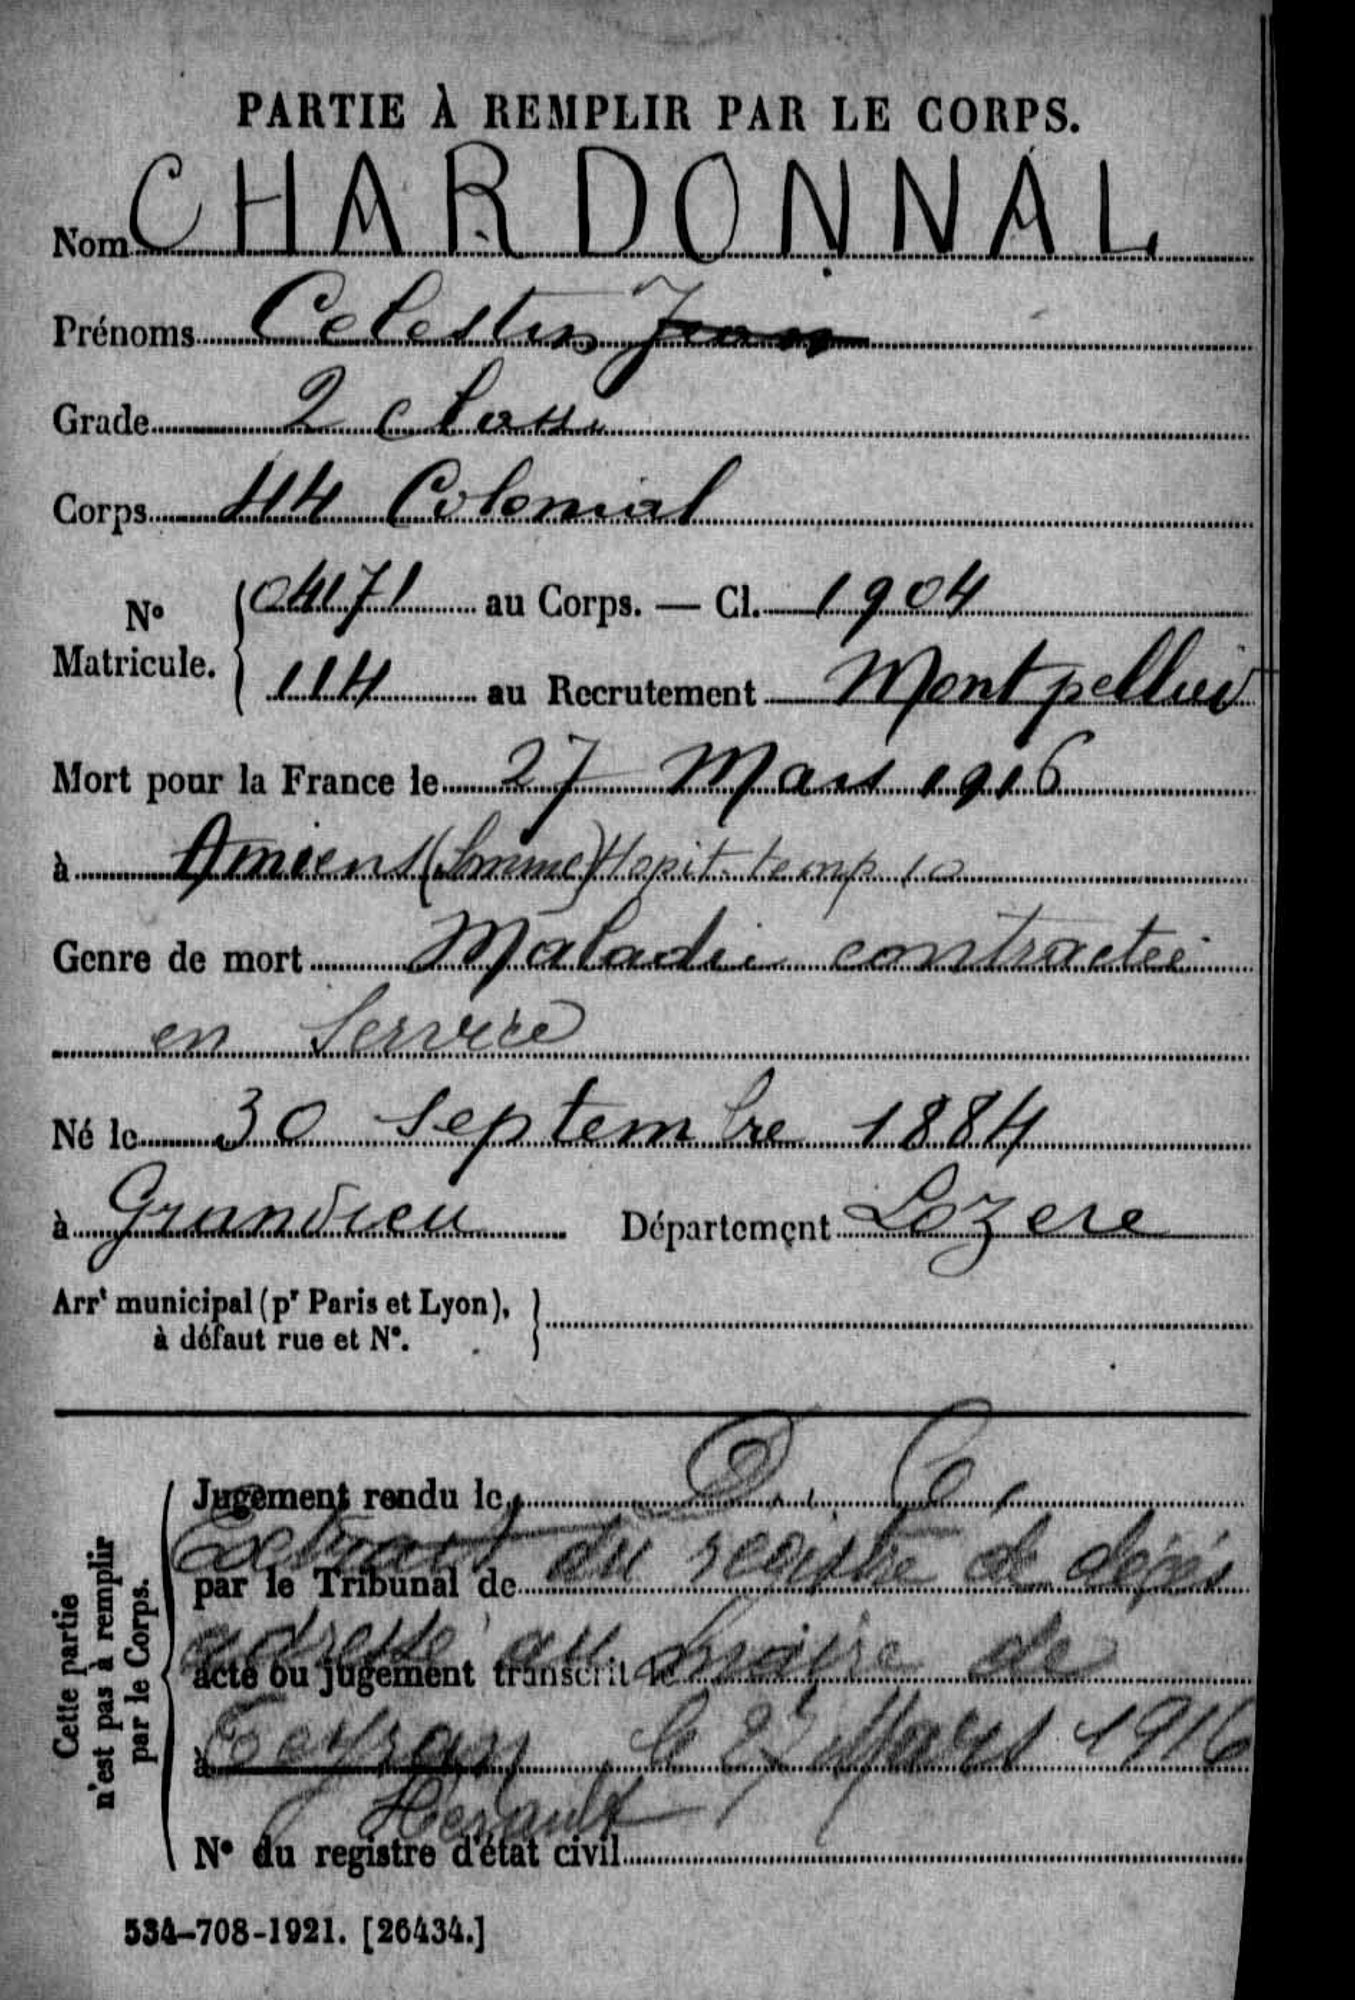 PARTIE À REMPLIR PAR LE CORPS.
Nom CHARDONNAL
Prénoms Celestin Jean
Grade 2 classe
Corps 44 Colonial
N° Matricule. { 04171 au Corps. — Cl. 1904
114 au Recrutement Montpellier
Mort pour la France le 27 Mars 1916
à Amiens (Somme) Hopit. temp 10
Genre de mort Maladie contractée
en Service
Né le 30 Septembre 1884
à Grandrieu Département Lozere
Arrt municipal (pr Paris et Lyon), à défaut rue et N°. }
Cette partie n'est pas à remplir par le Corps.
Jugement rendu le
Extrait du registre de décès
par le Tribunal de
adressé au maire de
acte ou jugement transcrit le
à Teyran le 27 Mars 1916
Herault
N° du registre d'état civil
534-708-1921. [26434.]